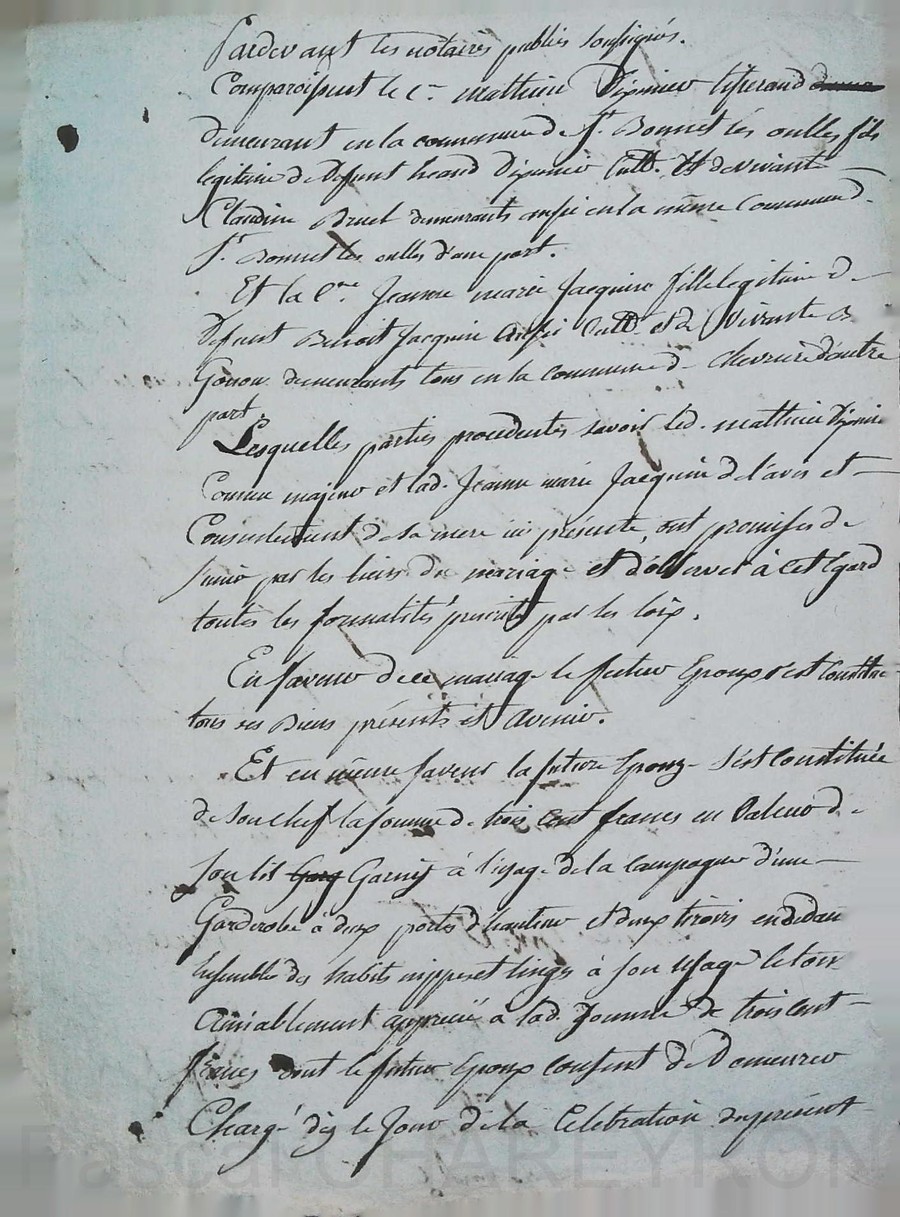 Pardevant les notaires publics soussignés.
Comparoissent le c.en mathieu Dupinier tisserand
demeurant en la commune de St Bonnet les oulles fils
legitime de Defunt heand Dupinier Cult. Et de vivant
Claudine Bruel demeurants aussi en la même Commune d
St Bonnet les oulles d'une part.
Et la C.ne Jeanne marie Jacquin fille legitime d
Defunt Benoit Jacquin Aussi Cult. et de Vivante B
Gonon demeurants tous en la commune d Chevrieres d'autre
part.
Lesquelles parties procedentes savoir led. mathieu Dupinier
Comme majeur et lad. Jeanne marie Jacquin de l'avis et
Consentement de sa mere ici présente, ont promises de
s'unir par les liens du mariage et d'observer à cet Egard
toutes les formalités prescrites par les loix.
En faveur de ce mariage le futur Epoux s'est Constitué
tous ses Biens présents et Avenir.
Et en même faveur la future Epouze s'est Constituée
de son chef la somme de trois cent francs en Valeur d
son lit Garnis à l'usage de la campagne d'une
Garderobe a deux portes d'hauteur et deux tirroirs en dedans
Ensemble des habits nippes et linges à son Usage le tout
Amiablement apprecié a lad. Somme de trois cent
francs dont le futur Epoux consent de Demeurer
Chargé dès le Jour de la Celebration du présent
Pascal CHAREYRON